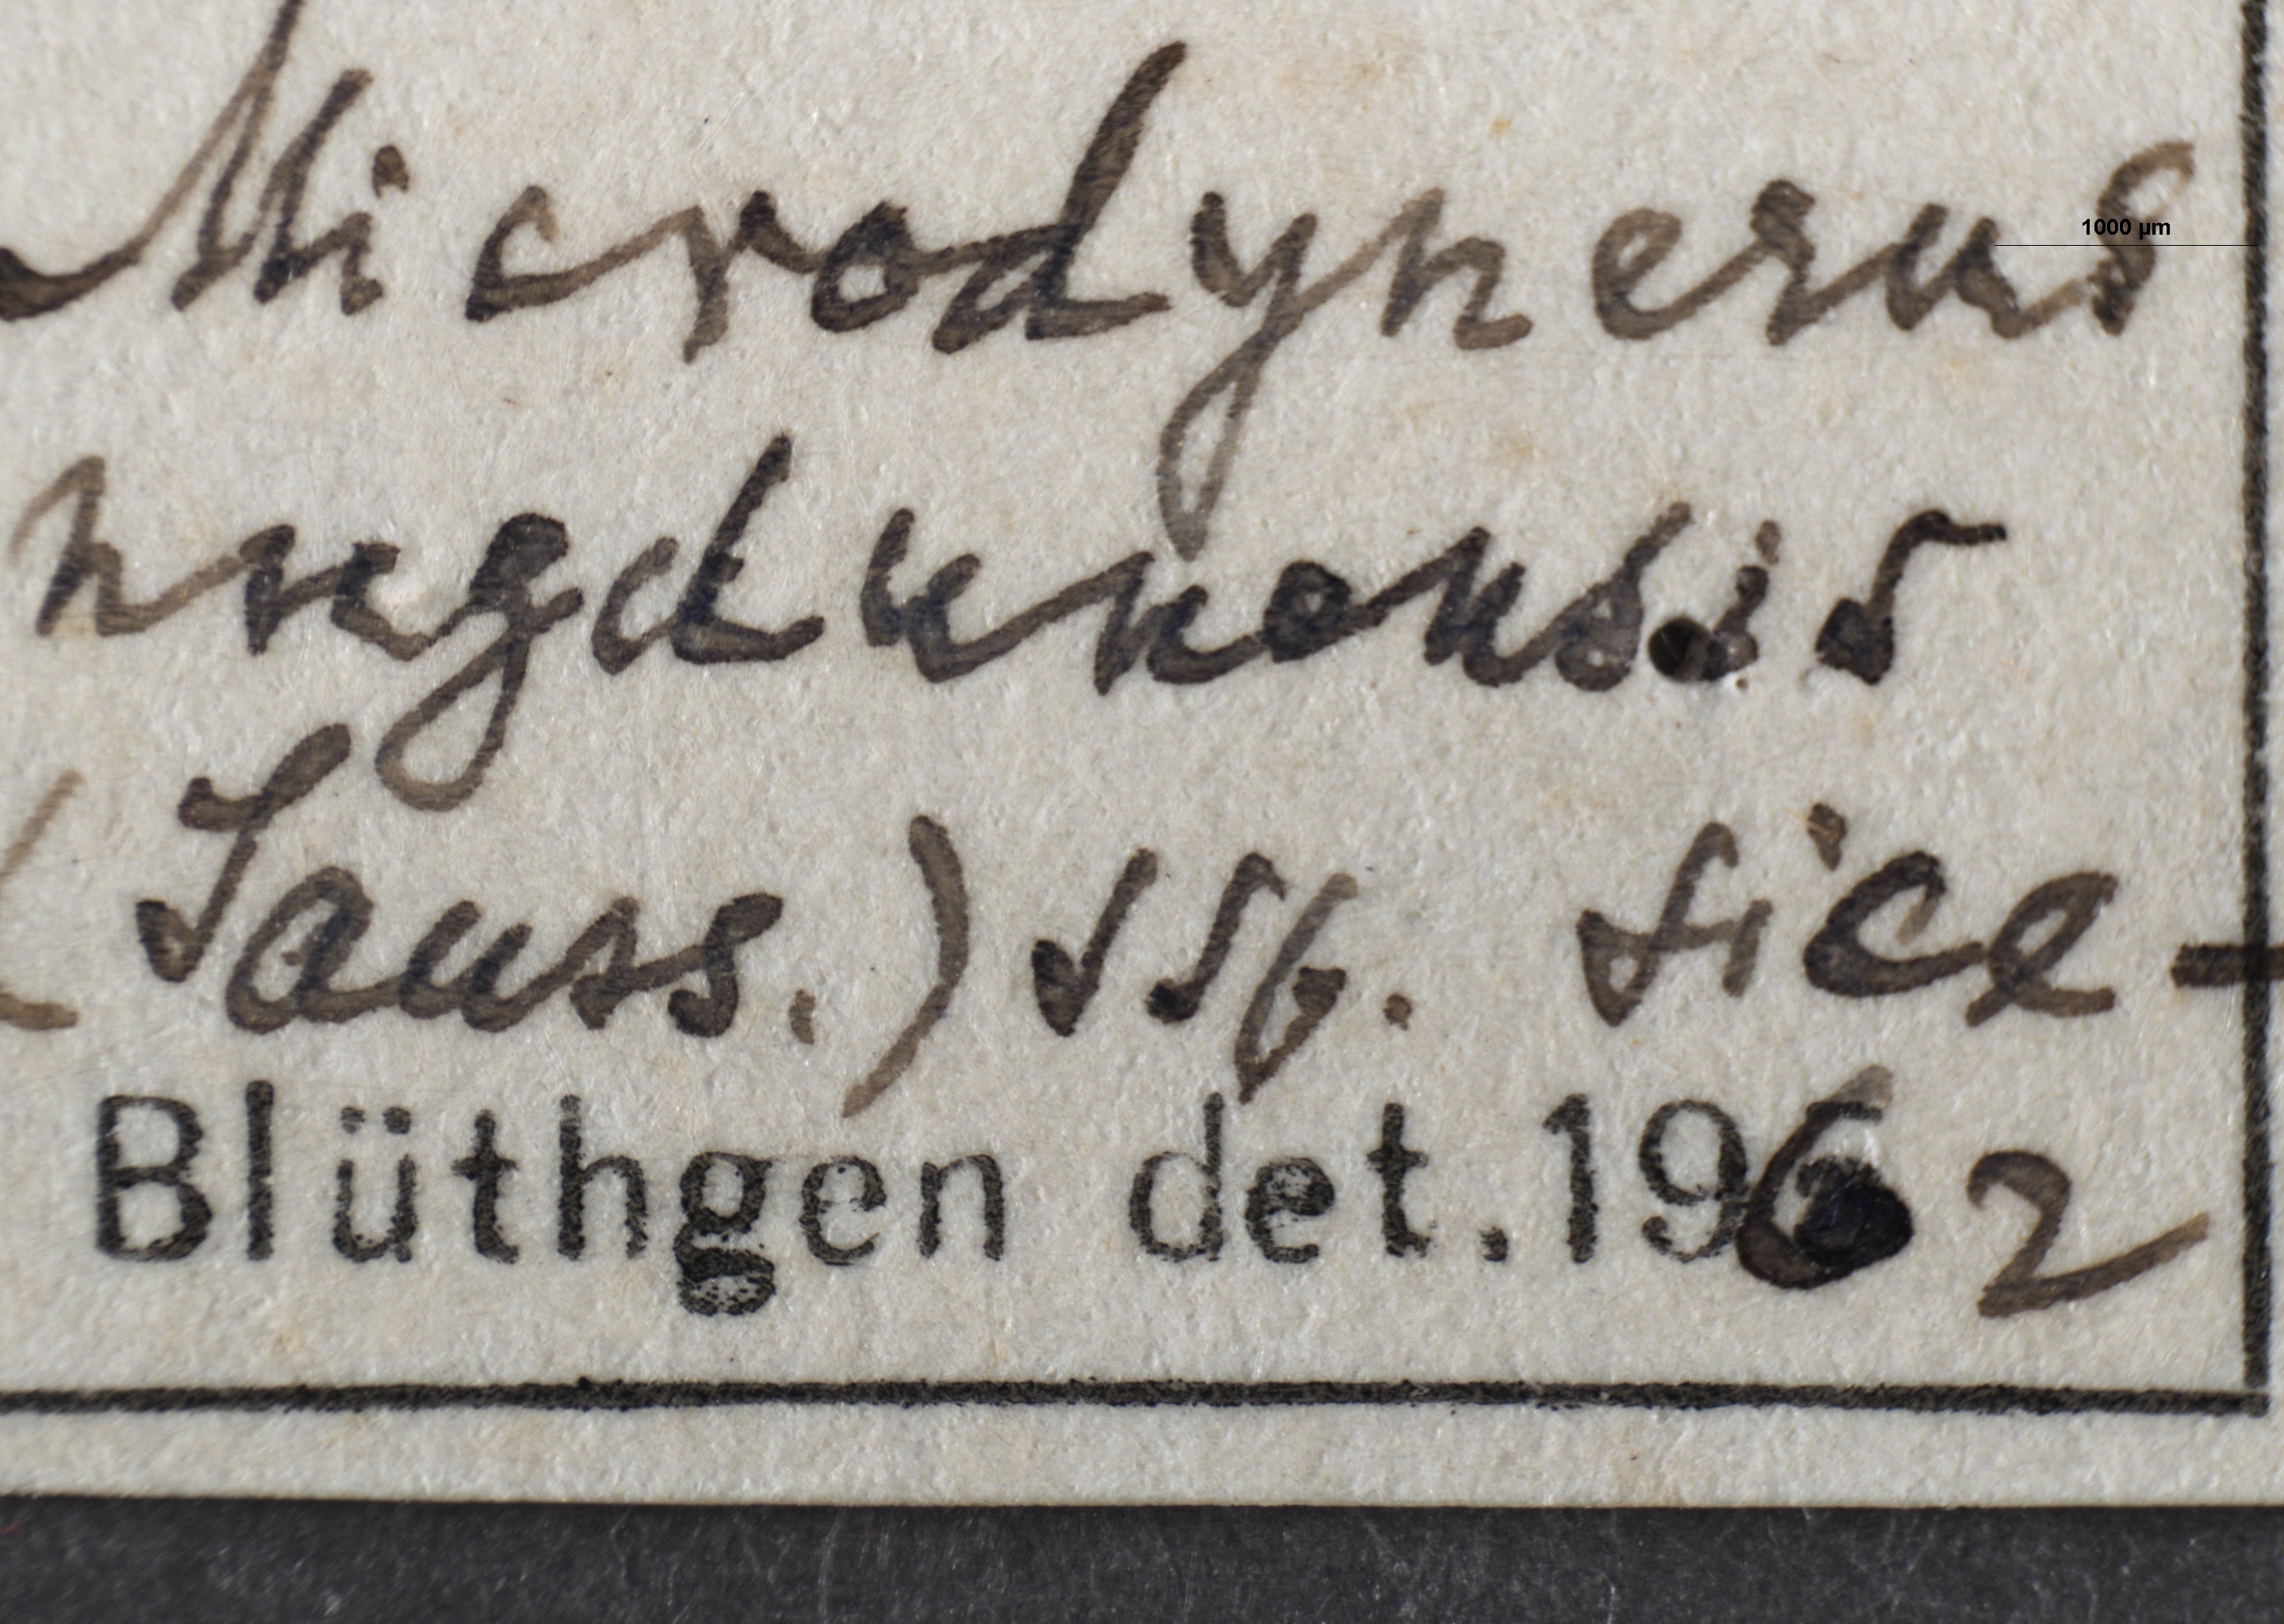 Microdynerus
nugdunensis
(Sauss.) ssp. sice-
Blüthgen det. 1962
1000 µm